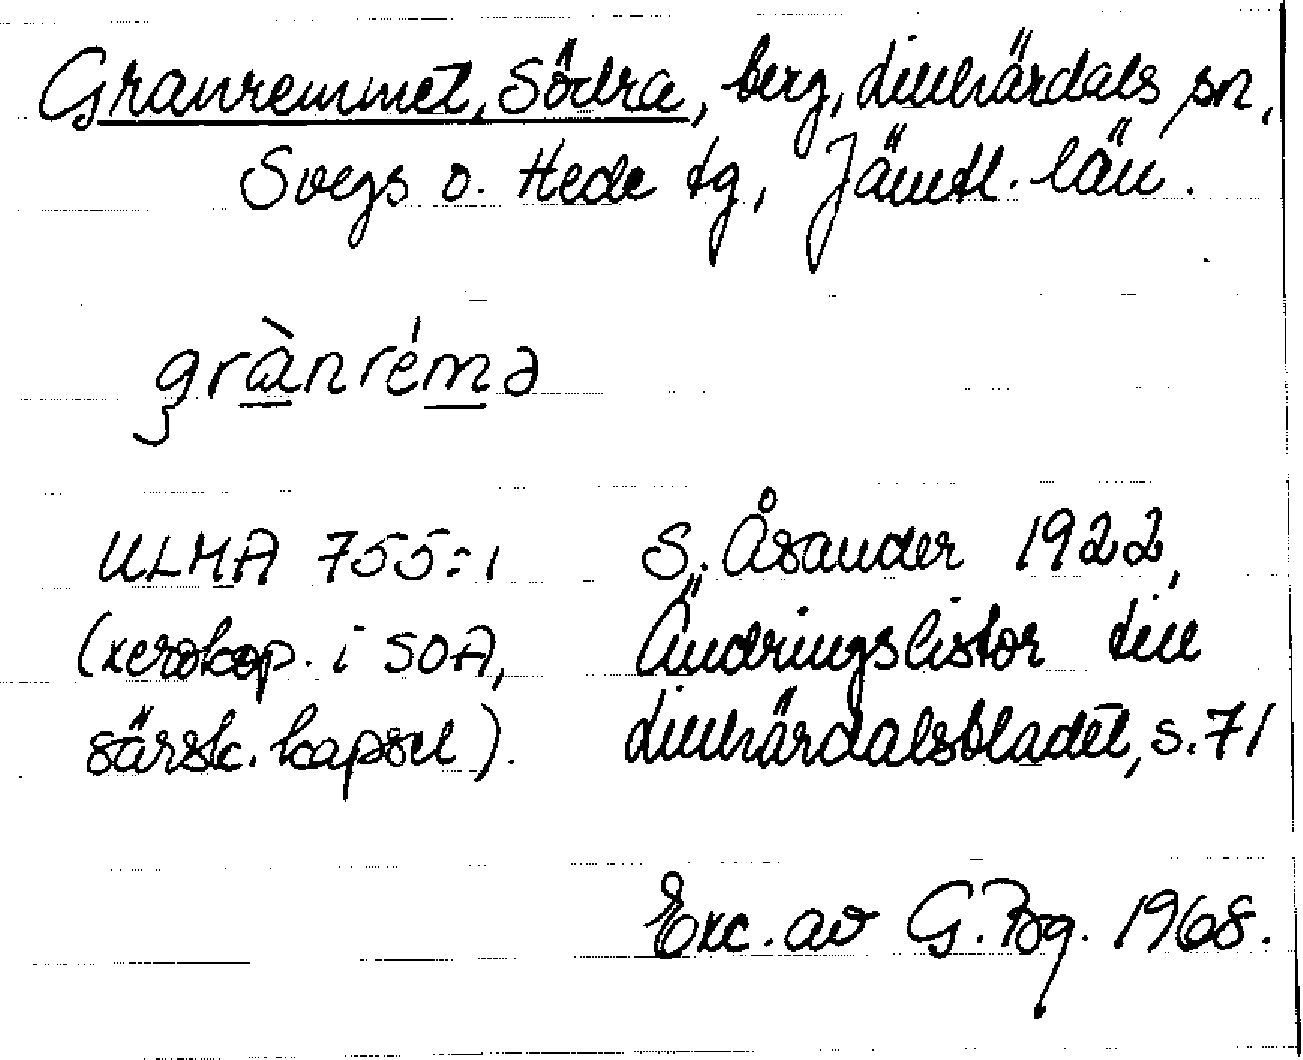 Granremmet, Södra, berg, Lillhärdals sn,
Svegs o. Hede tg, Jämtl. län.
grànréma
ULMA 755:1 S. Åsander 1922,
(xerokop. i SOA, Ändringslistor till
särsk. kapsel). Lillhärdalsbladet, s. 71
Exc. av G. Bg. 1968.